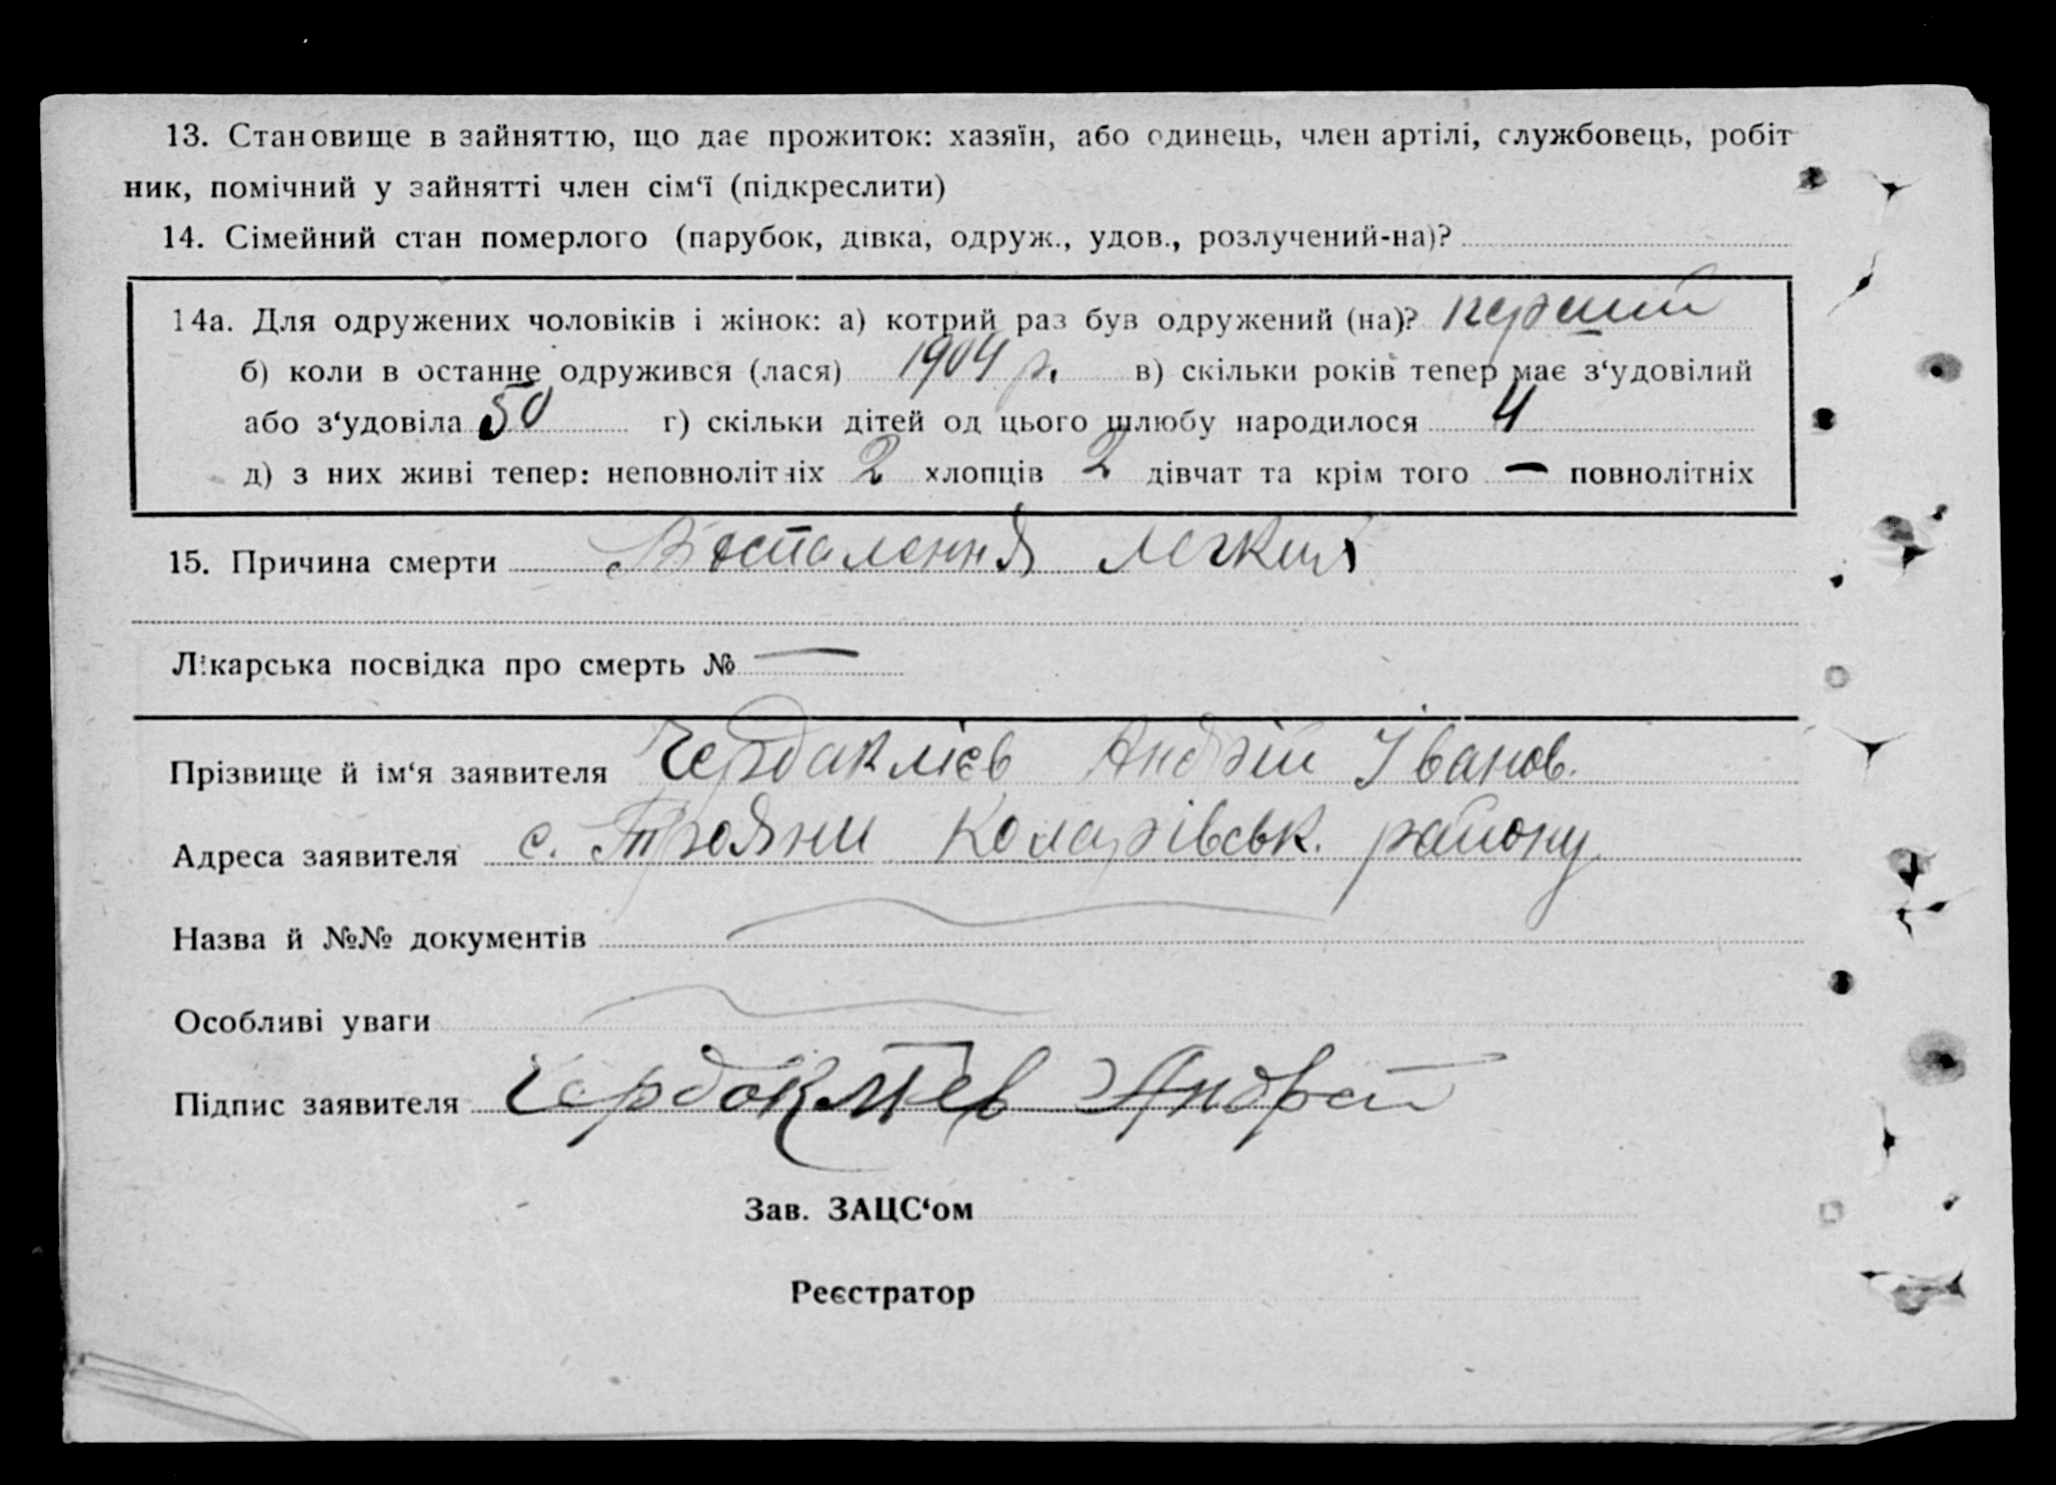 13. Становище в зайняттю, що дає прожиток: хазяїн, або одинець, член артілі, службовець, робіт-
ник, помічний у зайнятті член сім‘ї (підкреслити)
14. Сімейний стан померлого (парубок, дівка, одруж., удов., розлучений-на)?
14а. Для одружених чоловіків і жінок: а) котрий раз був одружений (на)? перший
б) коли в останнє одружився (лася) 1904 р. в) скільки років тепер має з‘удовілий
або з‘удовіла 50 г) скільки дітей од цього шлюбу народилося 4
д) з них живі тепер: неповнолітніх 2 хлопців 2 дівчат та крім того — повнолітніх
15. Причина смерти Воспалення легких
Лікарська посвідка про смерть № —
Прізвище й ім‘я заявителя Чердаклієв Андрій Іванов.
Адреса заявителя с. Трояни Коларівськ. району
Назва й №№ документів
Особливі уваги
Підпис заявителя Чердаклиев Андрей
Зав. ЗАЦС‘ом
Реєстратор